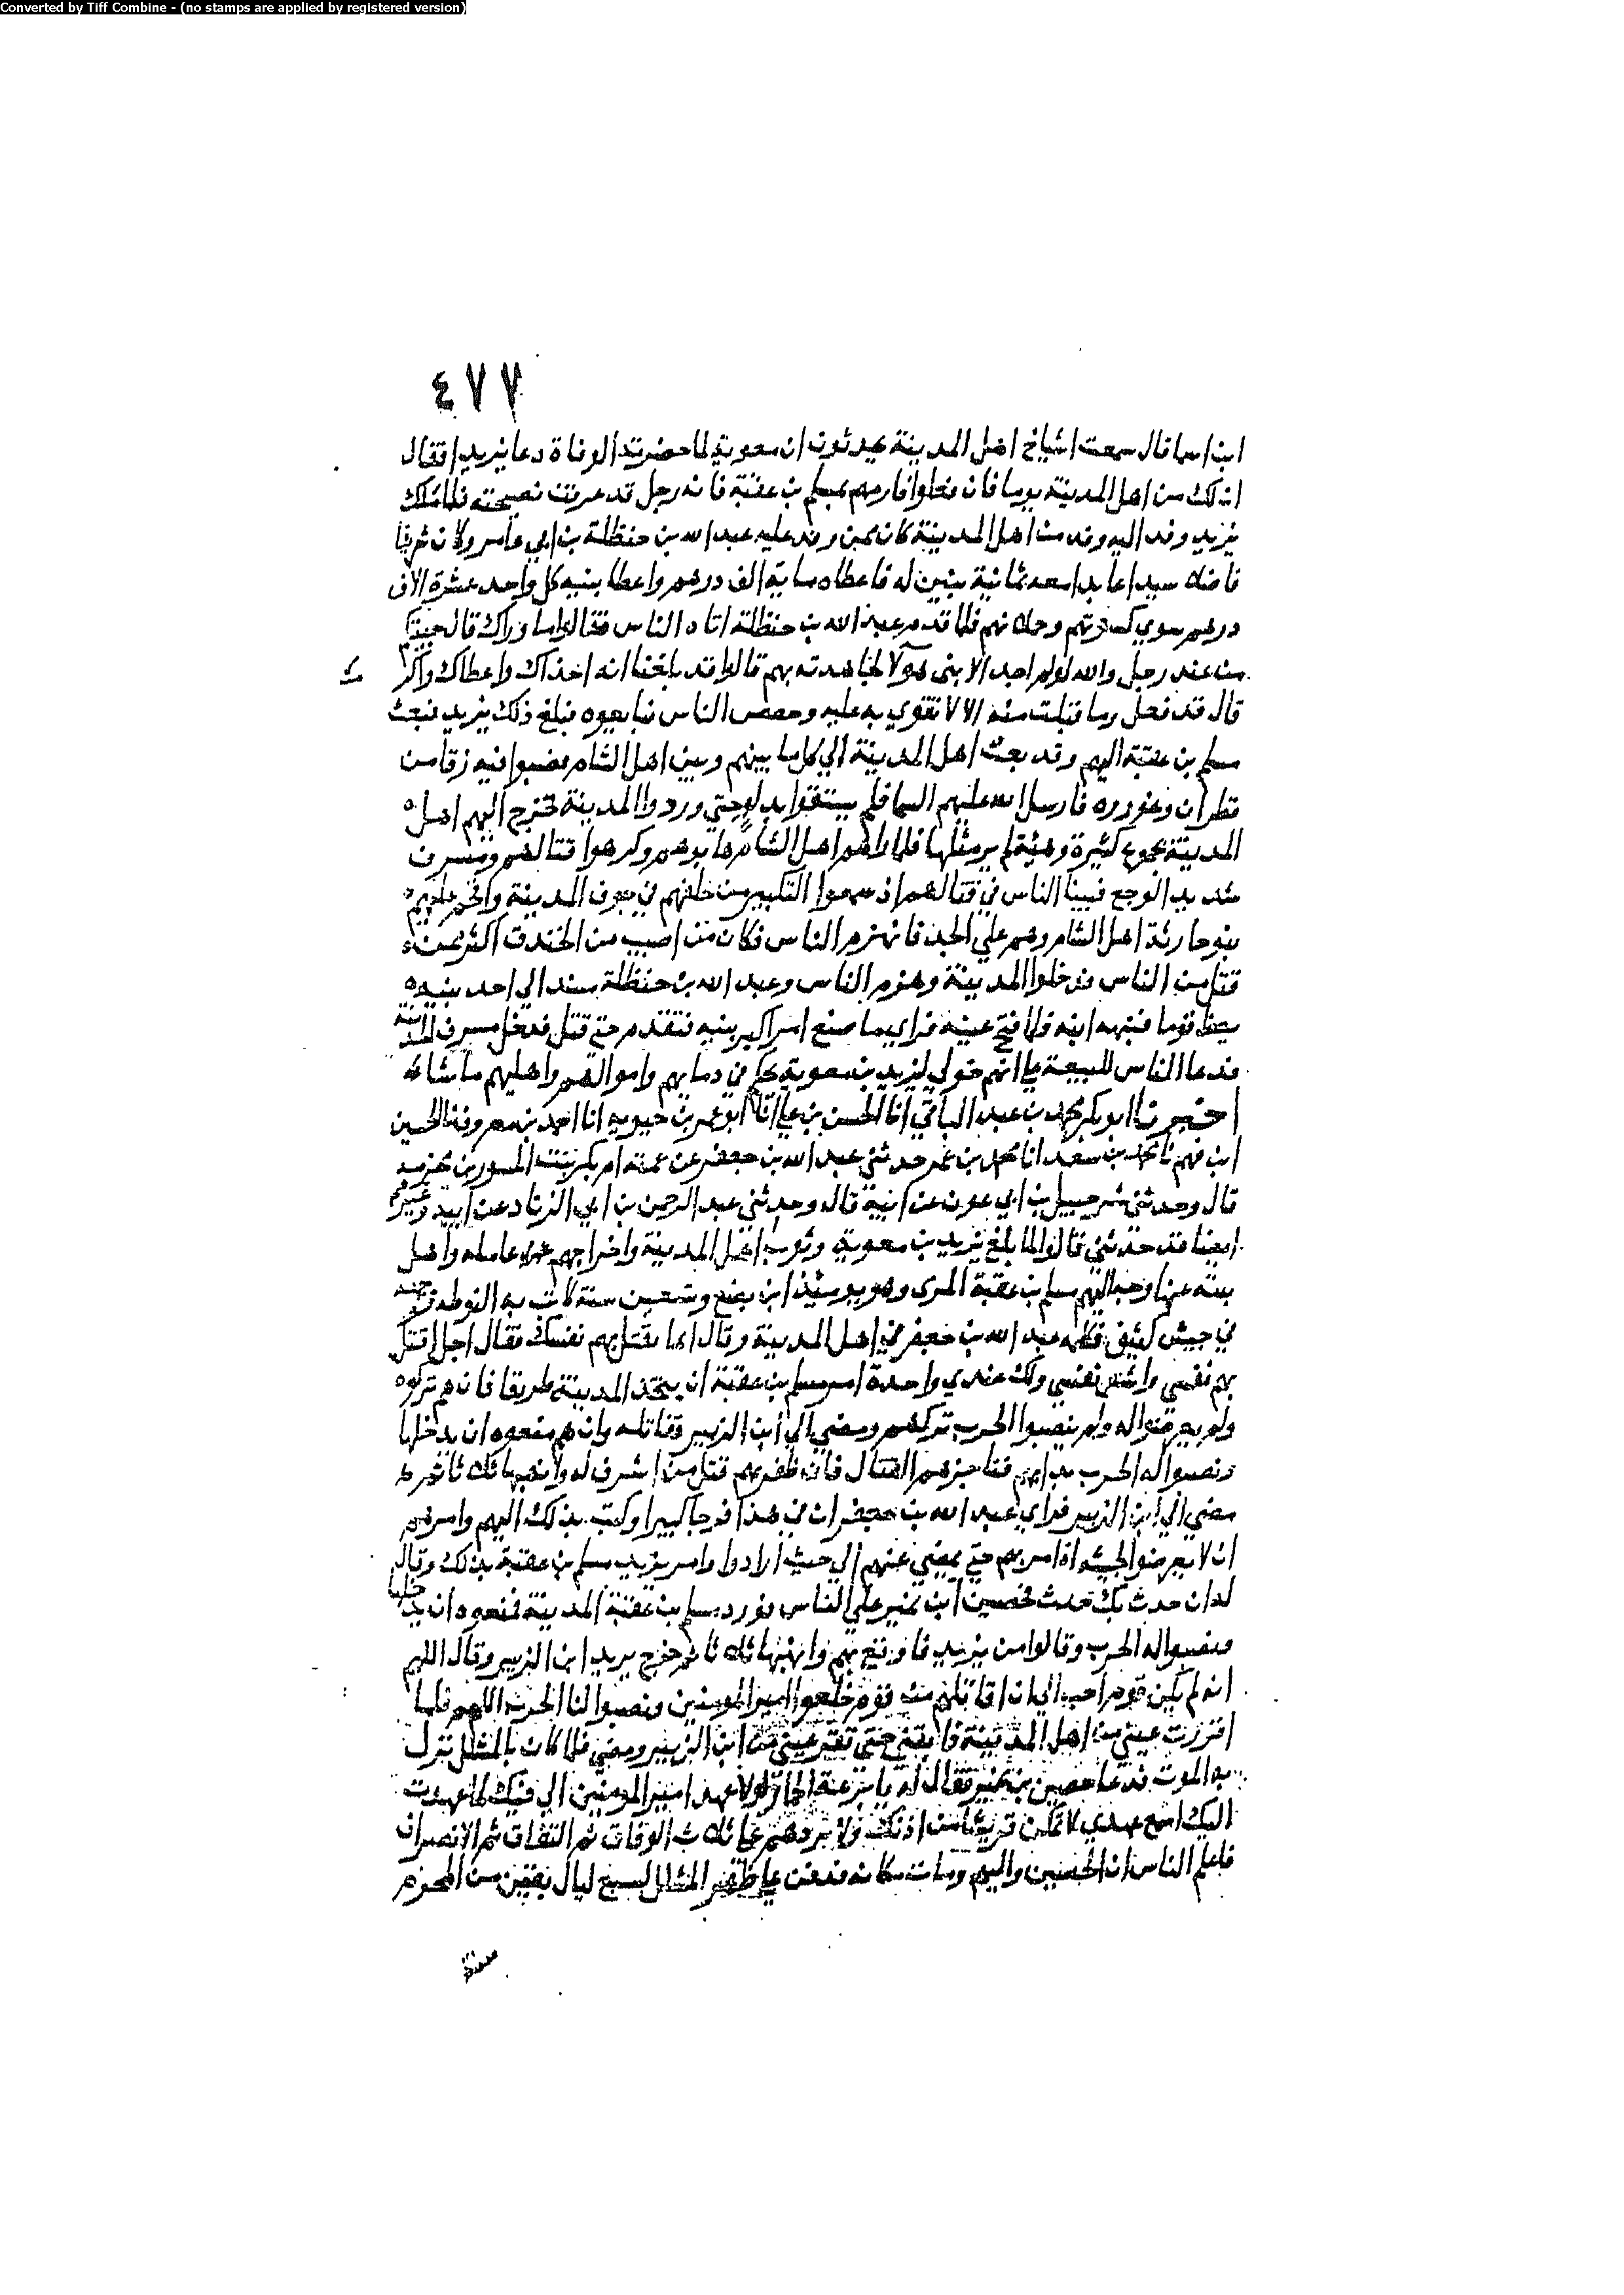 Converted by Tiff Combine - (no stamps are applied by registered version)
٤٧٧
ابن اسما قال سمعت اشياخ اهل المدينة يحدثون ان معوية لما حضرته الوفاة دعا يزيد فقال
ان لك من اهل المدينة يوما فان فعلوا فارمهم بمسلم بن عقبة فانه رجل قد عرفت نصيحته فلما ملك
يزيد وفد اليه وفد من اهل المدينة كان ممن وفد عليه عبد الله بن حنظلة بن ابي عامر وكان شريفا
فاضلا سيدا عابدا معه ثمانية بنين له فاعطاه ماية الف درهم واعطا بنيه كل واحد عشرة الاف
درهم سوي كسوتهم وحملانهم فلما قدم عبد الله بن حنظلة اتاه الناس فقالوا ما وراك قال جيتكم
من عند رجل والله لو لم اجد الا بني هولا لجاهدته بهم قالوا قد بلغنا انه اخذاك واعطاك واكرمك
قال قد فعل وما قبلت منه الا لا تقوي به عليه وحضض الناس فبايعوه فبلغ ذلك يزيد فبعث
مسلم بن عقبة اليهم وقد بعث اهل المدينة الي كل ما بينهم وبين اهل الشام فصبوا فيه زقا من
قطران وعوروه فارسل الله عليهم السما فلم يستقوا بدلو حتي وردوا المدينة فخرج اليهم اهل
المدينة بجموع كثيرة وهيئة لم ير مثلها فلما راهم اهل الشام هابوهم وكرهوا قتالهم ومسرف
شديد الوجع فبينا الناس في قتالهم اذ سمعوا التكبير من خلفهم في جوف المدينة واقحم عليهم
بنو حارثة اهل الشام وهم علي الجد فانهزم الناس فكان من اصيب من الخندق اكثر ممن
قتل من الناس فدخلوا المدينة وهزم الناس وعبد الله بن حنظلة مسند الي احد بنيه
يغط نوما فنبهه ابنه فلما فتح عينيه فراي ما صنع امر اكبر بنيه فتقدم حتي قتل فدخل مسرف المدينة
فدعا الناس للبيعة علي انهم خول ليزيد بن معوية يحكم في دمايهم واموالهم واهليهم ما شاء
اخبرنا ابو بكر محمد بن عبد الباقي انا الحسن بن علي انا ابو عمر بن حيويه انا احمد بن معروف نا الحسين
ابن فهم نا محمد بن سعد انا محمد بن عمر حدثني عبد الله بن جعفر عن عمته ام بكر بنت المسور بن مخرمة
قال وحدثني شرحبيل بن ابي عون عن ابيه قال وحدثني عبد الرحمن بن ابي الزناد عن ابيه وغيرهم
ايضا قد حدثني قالوا لما بلغ يزيد بن معوية وثوب اهل المدينة واخراجهم عامله واهل
بيته عنها وجه اليهم مسلم بن عقبة المري وهو يومئذ ابن بضع وتسعين سنة كانت به النوطة
في جيش كثيف فكلمه عبد الله بن جعفر في اهل المدينة وقال انما تقتل بهم نفسك فقال اجل اقتل
بهم نفسي واشفي نفسي ولك عندي واحدة امر مسلم بن عقبة ان يتخذ المدينة طريقا فان هم تركوه
ولم يعرضوا له ولم ينصبوا الحرب تركهم ومضي الي ابن الزبير وقاتله وان هم منعوه ان يدخلها
ونصبوا له الحرب بدا بهم فناجزهم القتال فان ظفر بهم قتل من اشرف له وانهبها ثلاثا ثم
مضي الي ابن الزبير فراي عبد الله بن جعفر ان في هذا فرجا كبيرا وكتب بذلك اليهم وامرهم
ان لا يعرضوا لجيشه اذا مر بهم حتي يمضي عنهم الي حيث ارادوا وامر يزيد مسلم بن عقبة بذلك وقال
له ان حدث بك حدث فحصين ابن نمير علي الناس فورد مسلم بن عقبة المدينة فمنعوه ان يدخلها
ونصبوا له الحرب وقالوا من يزيد فاوقع بهم وانهبها ثلاثا ثم خرج يريد ابن الزبير وقال اللهم
انه لم يكن قوم احب الي ان اقاتلهم من قوم خلعوا امير المومنين ونصبوا لنا الحرب اللهم فكما
اقررت عيني من اهل المدينة فابقني حتي تقر عيني من ابن الزبير ومضي فلما كان بالمشلل نزل
به الموت فدعا حصين بن نمير فقال له يا برذعة الحمار لولا عهد امير المومنين الي فيك لما عهدت
اليك اسمع عهدي لا تمكن قريشا من اذنك ولا تزدهم علي ثلاث الوقاف ثم الثقاف ثم الانصراف
فاعلم الناس ان الحصين واليهم ومات مكانه فدفن علي ظهر المشلل لسبع ليال بقين من المحرم
سنة